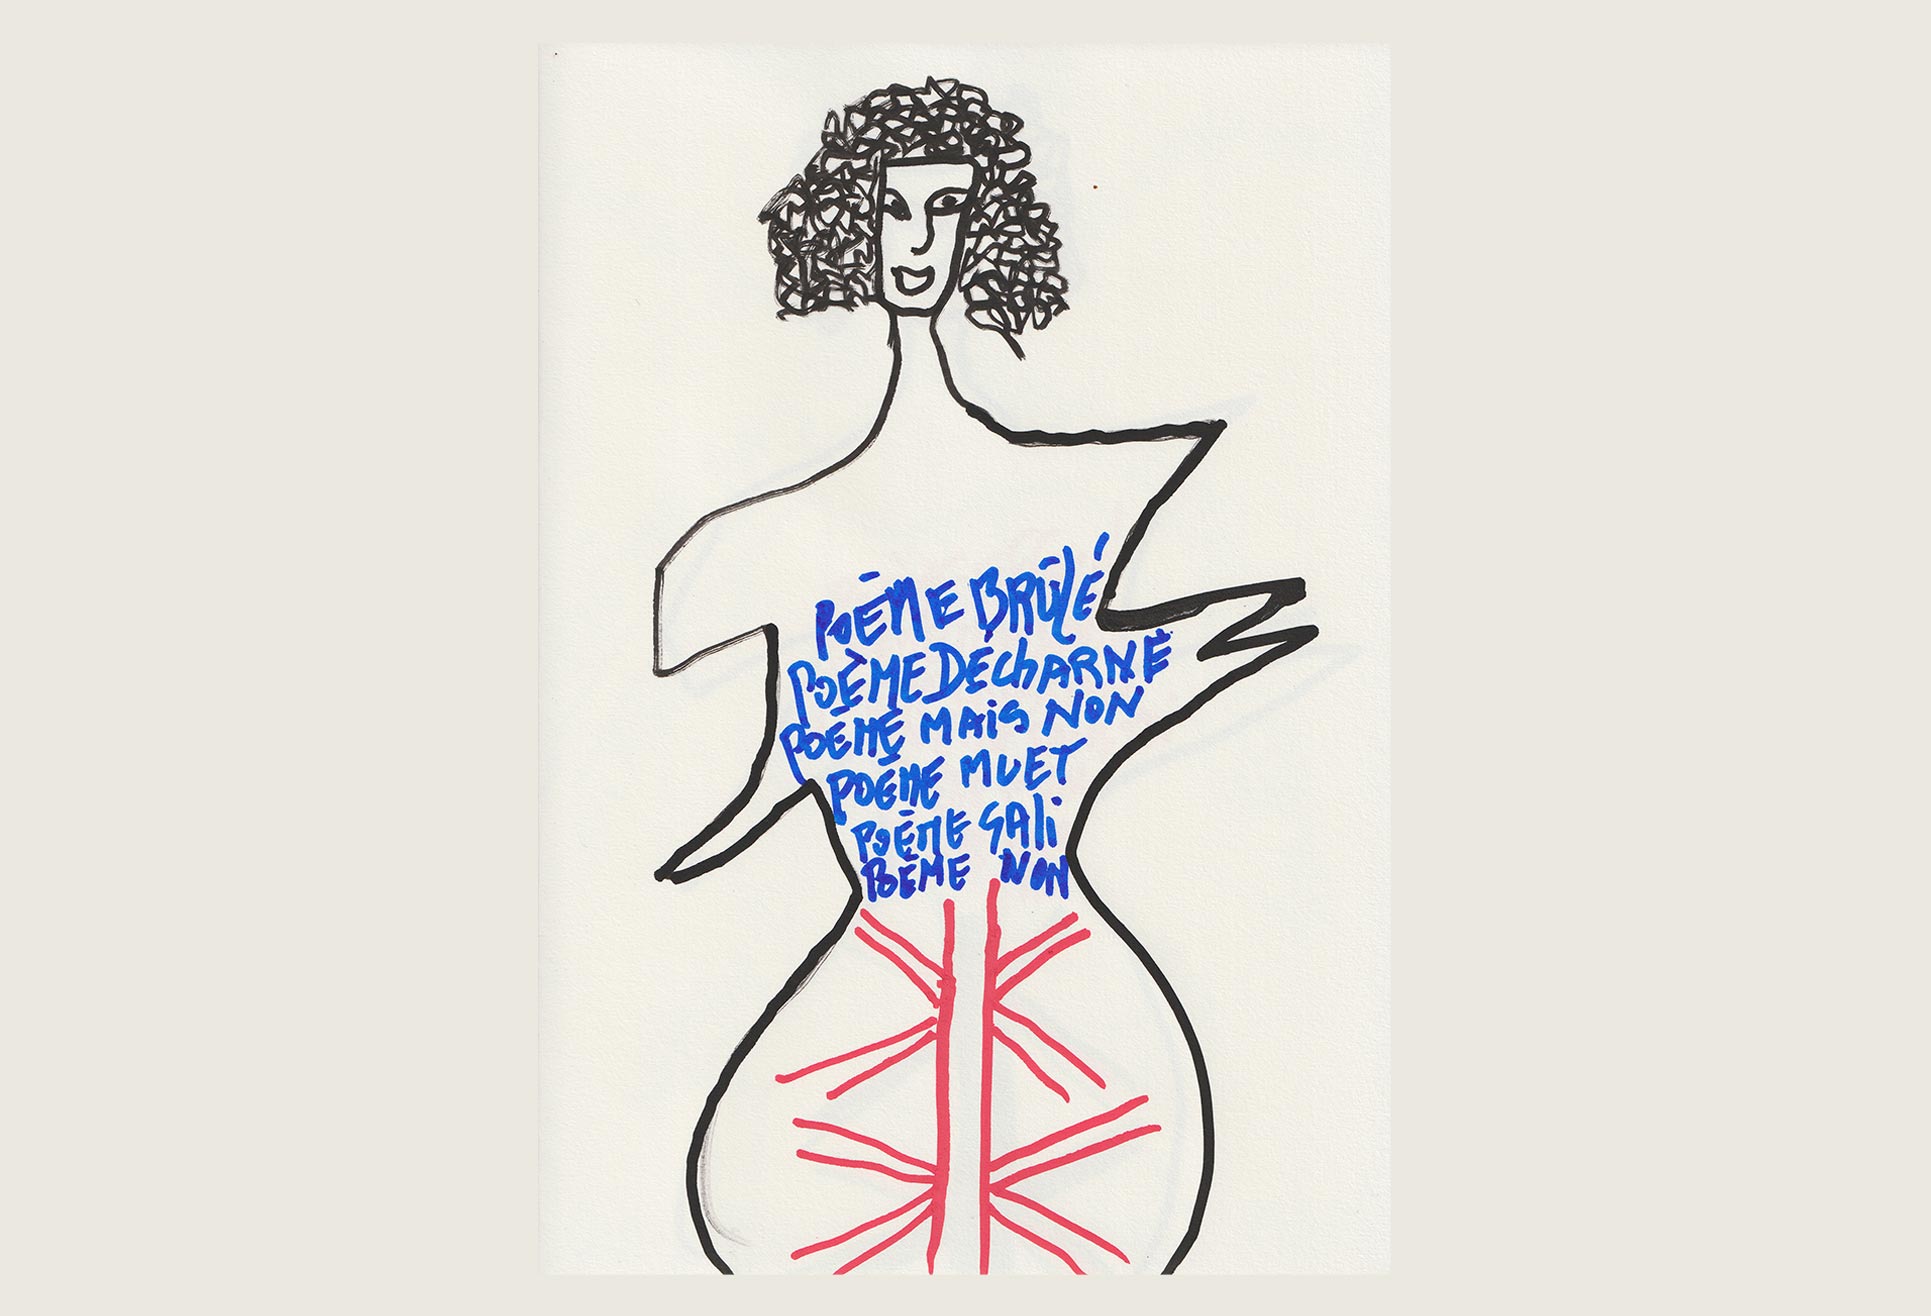 POÈME BRÛLÉ
POÈME DÉChARNÉ
POÈME MAiS NON
POÈME MUET
POÈME SAli
POÈME NON